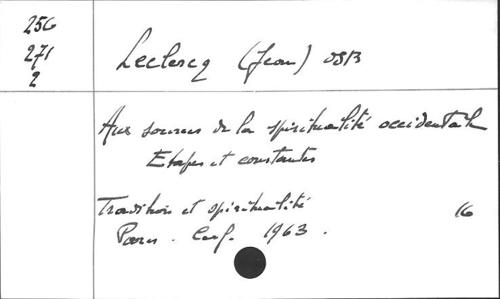 256
271
2
Leclercq (Jean) OSB
Aux sources de la spiritualité occidentale
Etapes et constantes
Tradition et spiritualité 16
Paris. Cerf. 1963.